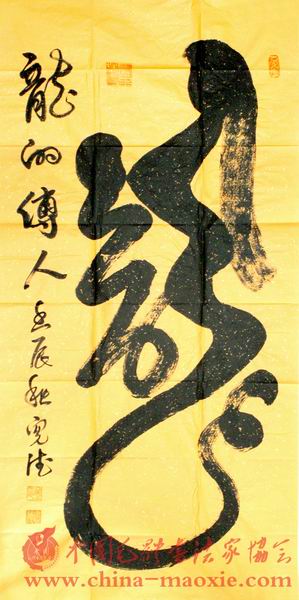 龍
龍的傳人 壬辰秋
中國毛體書法家協会
www.china-maoxie.com